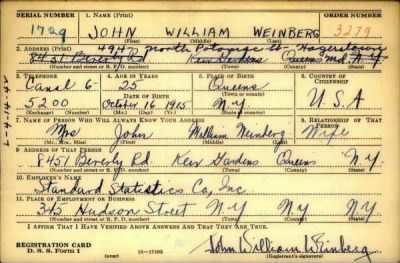 SERIAL NUMBER 1. NAME (Print) ORDER NUMBER
1729 JOHN WILLIAM WEINBERG 3279
(First) (Middle) (Last)
2. ADDRESS (Print) 49 North Potomac St - Hagerstown
8451 Beverly Rd Kew Gardens Queens Md. N.Y.
(Number and street or R. F. D. number) (Town) (County) (State)
3. TELEPHONE 4. AGE IN YEARS 5. PLACE OF BIRTH 6. COUNTRY OF CITIZENSHIP
Canal 6- 25 Queens
DATE OF BIRTH (Town or county)
5200 October 16 1915 N.Y. U.S.A
(Exchange) (Number) (Mo.) (Day) (Yr.) (State or country)
7. NAME OF PERSON WHO WILL ALWAYS KNOW YOUR ADDRESS 8. RELATIONSHIP OF THAT PERSON
Mrs John William Weinberg Wife
(Mr., Mrs., Miss) (First) (Middle) (Last)
9. ADDRESS OF THAT PERSON
8451 Beverly Rd. Kew Gardens Queens N.Y.
(Number and street or R. F. D. number) (Town) (County) (State)
10. EMPLOYER'S NAME
Standard Statistics Co, Inc
11. PLACE OF EMPLOYMENT OR BUSINESS
345 Hudson Street N.Y N.Y N.Y
(Number and street or R. F. D. number) (Town) (County) (State)
I AFFIRM THAT I HAVE VERIFIED ABOVE ANSWERS AND THAT THEY ARE TRUE.
REGISTRATION CARD
D. S. S. Form 1 16-17105 John William Weinberg
(Registrant's signature)